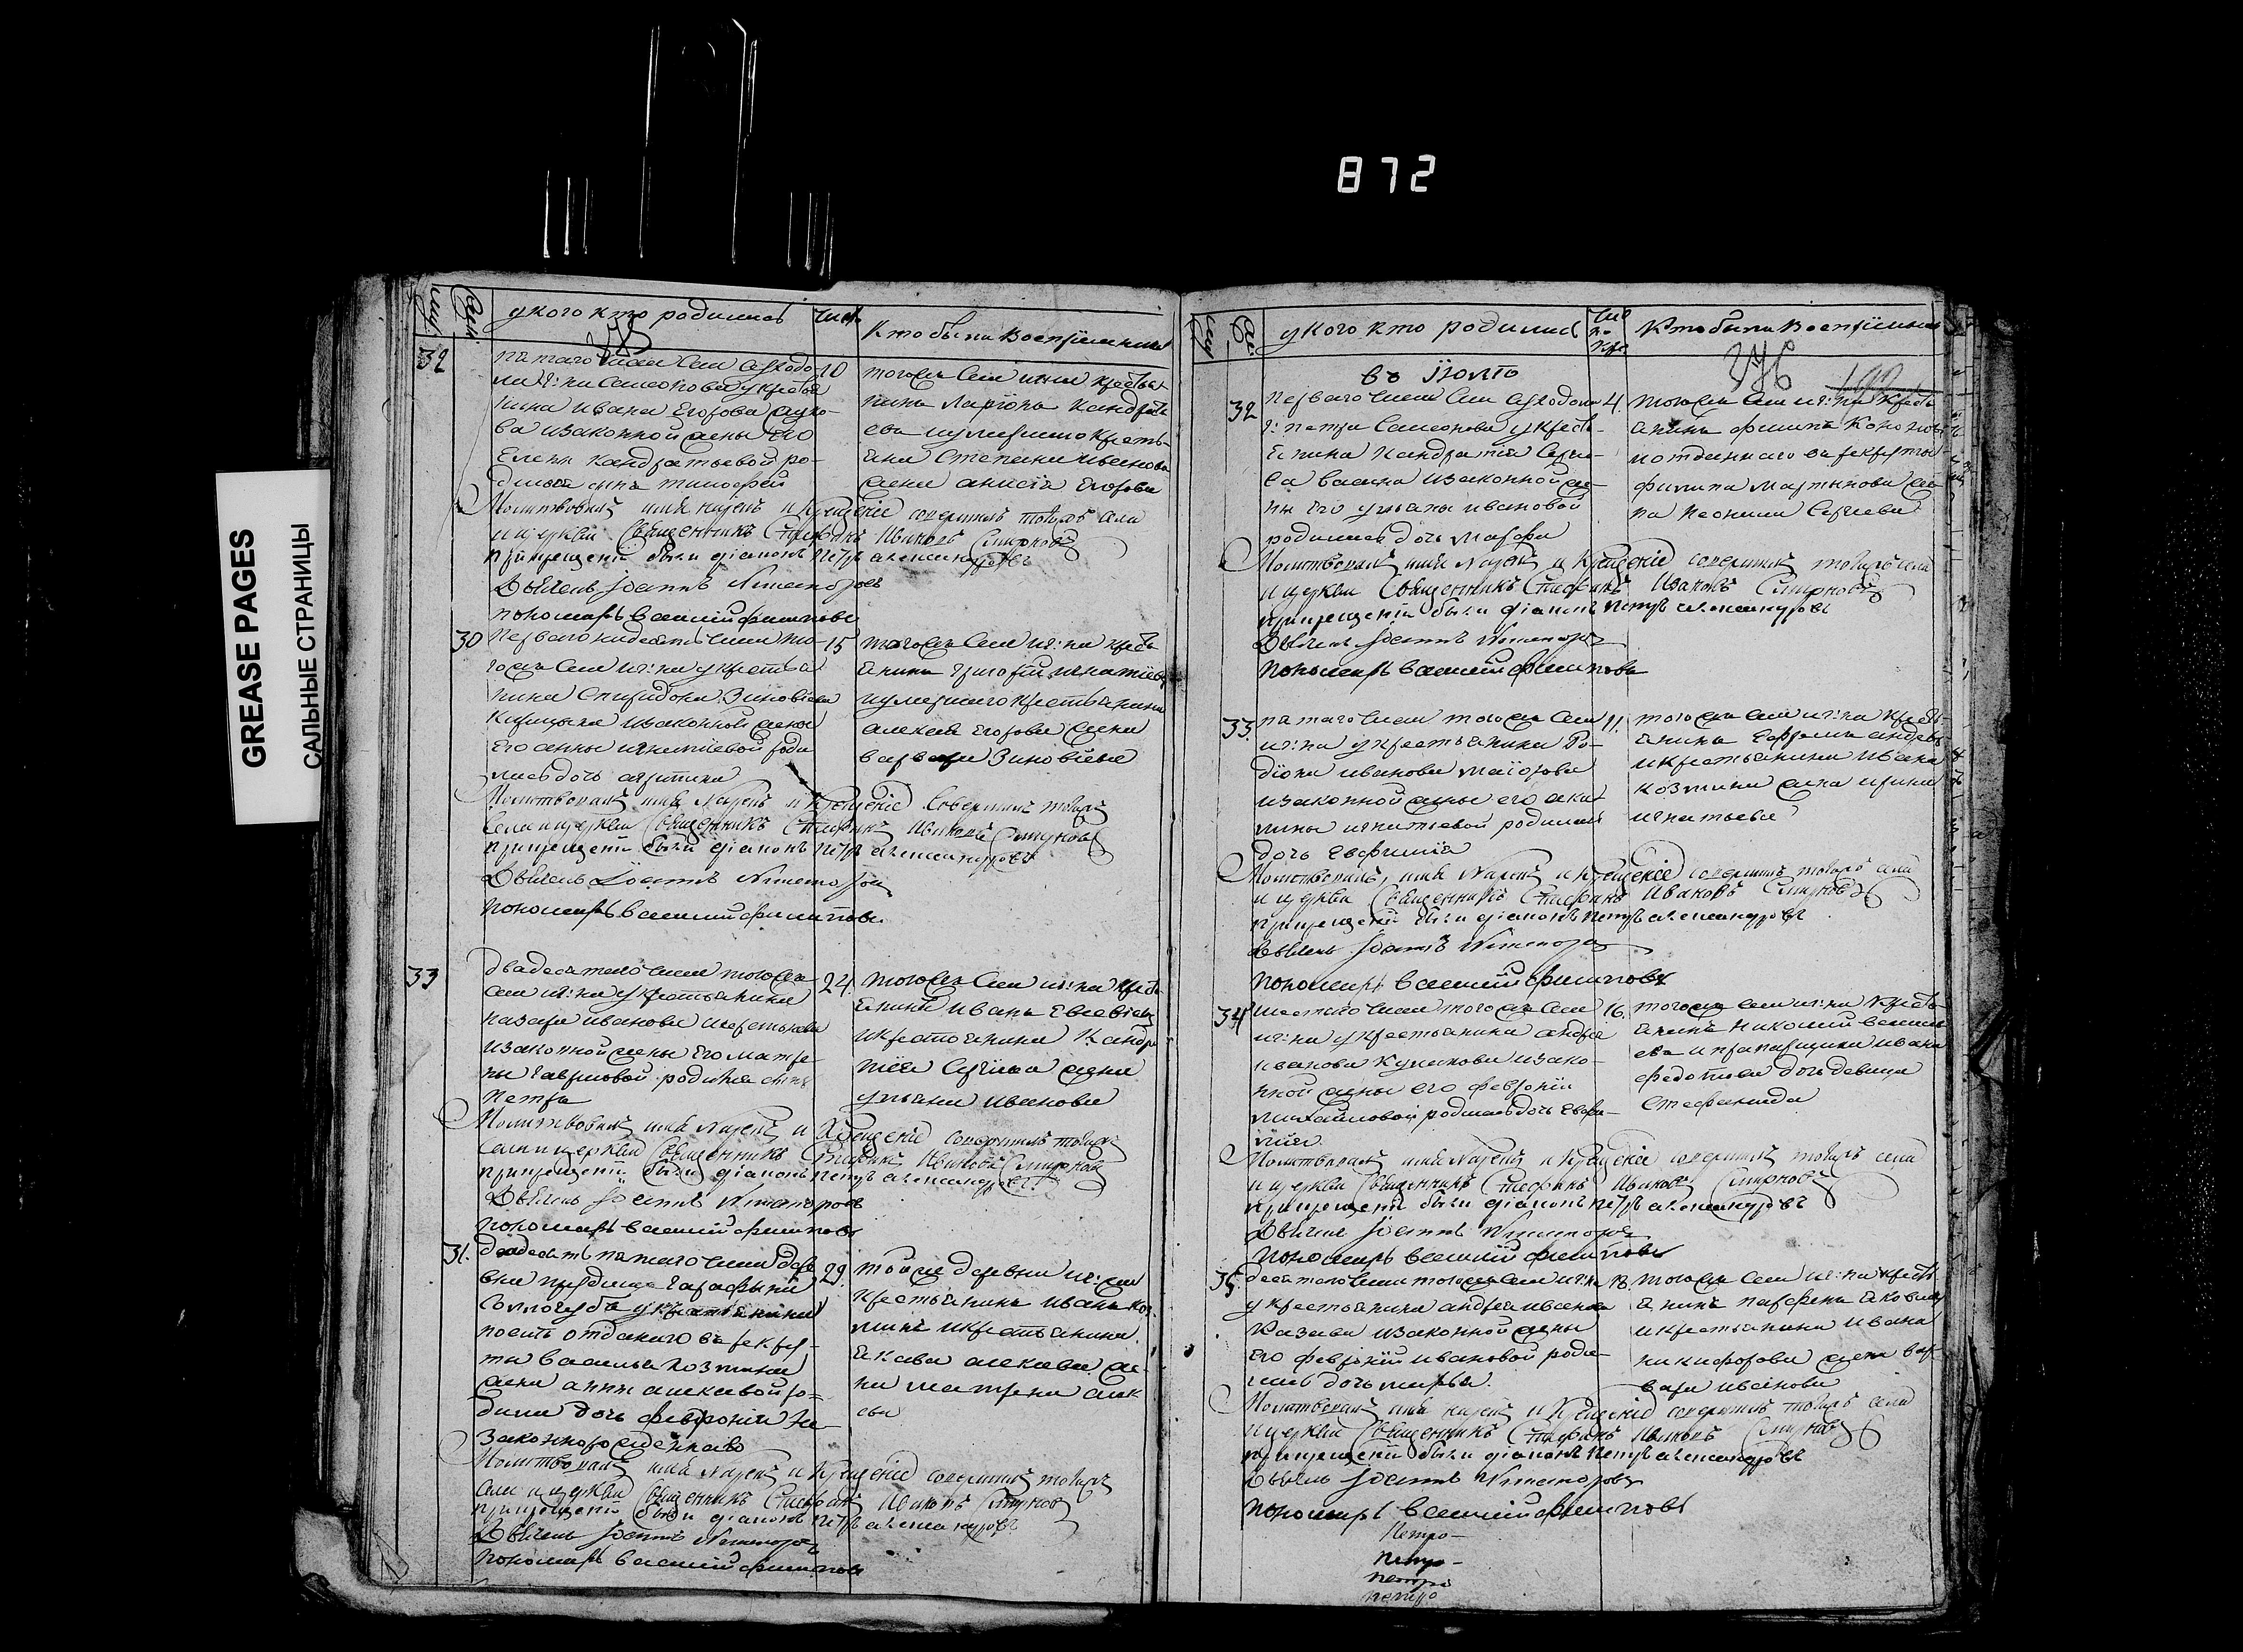 872
GREASE PAGES
САЛЬНЫЕ СТРАНИЦЫ
у кого кто родился
Числ
Кто были восприемники
32
пятаго числа села
10
тогожъ села
крестья-
нина Ивана Егорова
ва изаконной жены его
Елены Кандратьевой ро-
дился сынъ Тимофей
нинъ Ларионъ Кандрать
ева
крестья-
нина Степана Иванова
жена Анисия Егорова
Молитвовалъ имя нарекъ и крещение совершилъ тогожъ села
и церкви священникъ Стефанъ Ивановъ Смирновъ
при крещении были диаконъ Петръ Александровъ
Дьячекъ Иоаннъ Никаноровъ
пономарь Василий Филиповъ
30
перваго числа то-
15
гожъ села у крестья
нина Спиридона Зиновиева
изаконной жены
его Анны Игнатиевой роди
лась дочь
тогожъ села крестья
нинъ Григорий Игнатиевъ
крестьянина
Алексея Егорова жена
Варвара Зиновиева
Молитвовалъ имя нарекъ и крещение совершилъ тогожъ
села и церкви священникъ Стефанъ Ивановъ Смирновъ
при крещении были диаконъ Петръ Александровъ
Дьячекъ Иоаннъ Никаноровъ
пономарь Василий Филиповъ
33
двадесятаго числа тогожъ
24
села у крестьянина
Назара Иванова
изаконной жены его Матре
ны Гавриловой родился сынъ
Петръ
тогожъ села крестья
нинъ Иванъ Евсевиевъ
и крестьянина Кандра
тия Сергиева жена
Ульяна Иванова
Молитвовалъ имя нарекъ и крещение совершилъ тогожъ
села и церкви священникъ Стефанъ Ивановъ Смирновъ
при крещении были диаконъ Петръ Александровъ
Дьячекъ Иоаннъ Никаноровъ
пономарь Василий Филиповъ
31.
двадесять пятаго числа дере
29.
вни
Соллогуба у крестьянина
отданаго въ рекру-
ты Василья Козмина
жена Анна Алексеевой ро-
дила дочь Феврония не-
законнорожденнаво
тойже деревни
крестьянинъ Иванъ Коз
минъ и крестьянина
Якова Алексеева же
на Матрена Алек
сеева
Молитвовалъ имя нарекъ и крещение совершилъ тогожъ
села и церкви священникъ Стефанъ Ивановъ Смирновъ
при крещении были диаконъ Петръ Александровъ
Дьячекъ Иоаннъ Никаноровъ
пономарь Василий Филиповъ
у кого кто родился
Кто были восприемники
въ июлѣ
32
перваго числа села
4.
Петра Самсонова у кресть-
янина Кандратия Серги-
ева изаконной же-
ны его Ульяны Ивановой
родилась дочь Марфа
тогожъ села крестья
янинъ Филипъ
отданнаго въ рекруты
Филипа Мартынова же
на Неонила Сергиева
Молитвовалъ имя нарекъ и крещение совершилъ тогожъ села
и церкви священникъ Стефанъ Ивановъ Смирновъ
при крещении были диаконъ Петръ Александровъ
Дьячекъ Иоаннъ Никаноровъ
пономарь Василий Филиповъ
33.
пятаго числа тогожъ села
11.
у крестьянина Ро-
диона Иванова Маиорова
изаконной жены его Аку
лины Игнатьевой родилась
дочь Евфимия
тогожъ села кресть-
янинъ Ефремъ Андреевъ
и крестьянина Ивана
Козмина жена Ирина
Игнатьева
Молитвовалъ имя нарекъ и крещение совершилъ тогожъ села
и церкви священникъ Стефанъ Ивановъ Смирновъ
при крещении были диаконъ Петръ Александровъ
Дьячекъ Иоаннъ Никаноровъ
пономарь Василий Филиповъ
34
шестаго числа тогожъ села
16.
у крестьянина Андрея
Иванова изако-
нной жены его Февронии
Михайловой родилась дочь Евфи-
мия
тогожъ села кресть
янинъ Николай Василь
евъ и прапарщика Ивана
Федотова дочь девица
Стефанида
Молитвовалъ имя нарекъ и крещение совершилъ тогожъ села
и церкви священникъ Стефанъ Ивановъ Смирновъ
при крещении были диаконъ Петръ Александровъ
Дьячекъ Иоаннъ Никаноровъ
пономарь Василий Филиповъ
35.
десятаго числа тогожъ села
18.
у крестьянина Андрея Иванова
изаконной жены
его Февронии Ивановой роди-
лась дочь Марья
тогожъ села кресть
янинъ Парфенъ Яковлевъ
и крестьянина Ивана
Никифорова жена Вар-
вара Иванова
Молитвовалъ имя нарекъ и крещение совершилъ тогожъ села
и церкви священникъ Стефанъ Ивановъ Смирновъ
при крещении были диаконъ Петръ Александровъ
Дьячекъ Иоаннъ Никаноровъ
пономарь Василий Филиповъ